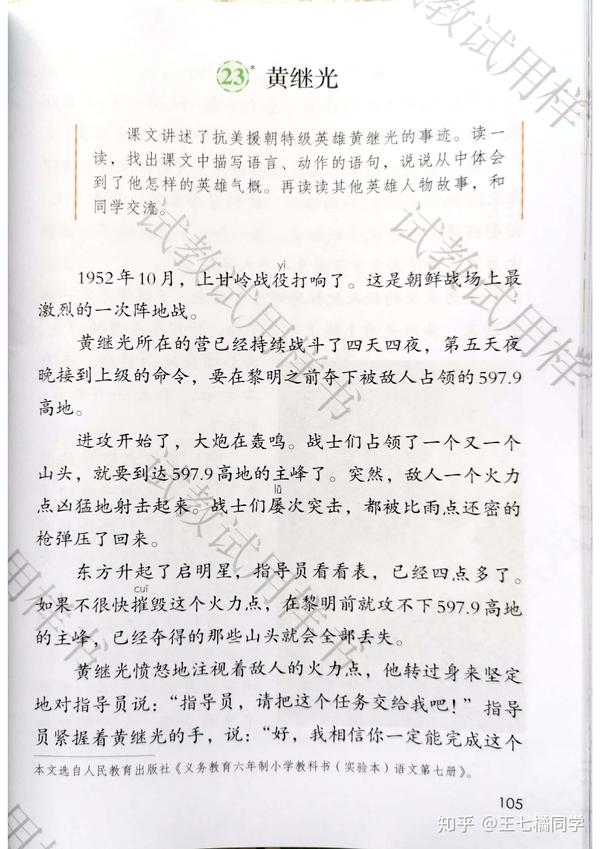 23* 黄继光
课文讲述了抗美援朝特级英雄黄继光的事迹。读一
读，找出课文中描写语言、动作的语句，说说从中体会
到了他怎样的英雄气概。再读读其他英雄人物故事，和
同学交流。
yì
1952年10月，上甘岭战役打响了。这是朝鲜战场上最
激烈的一次阵地战。
黄继光所在的营已经持续战斗了四天四夜，第五天夜
晚接到上级的命令，要在黎明之前夺下被敌人占领的597.9
高地。
进攻开始了，大炮在轰鸣。战士们占领了一个又一个
山头，就要到达597.9高地的主峰了。突然，敌人一个火力
lǚ
点凶猛地射击起来。战士们屡次突击，都被比雨点还密的
枪弹压了回来。
东方升起了启明星，指导员看看表，已经四点多了。
cuī
如果不很快摧毁这个火力点，在黎明前就攻不下597.9高地
的主峰，已经夺得的那些山头就会全部丢失。
黄继光愤怒地注视着敌人的火力点，他转过身来坚定
地对指导员说：“指导员，请把这个任务交给我吧！”指导
员紧握着黄继光的手，说：“好，我相信你一定能完成这个
本文选自人民教育出版社《义务教育六年制小学教科书（实验本）语文第七册》。
105
知乎 @王七橘同学
试教试用样书
试教试用样书
试教试用样书
用样书
用样
试教试用样